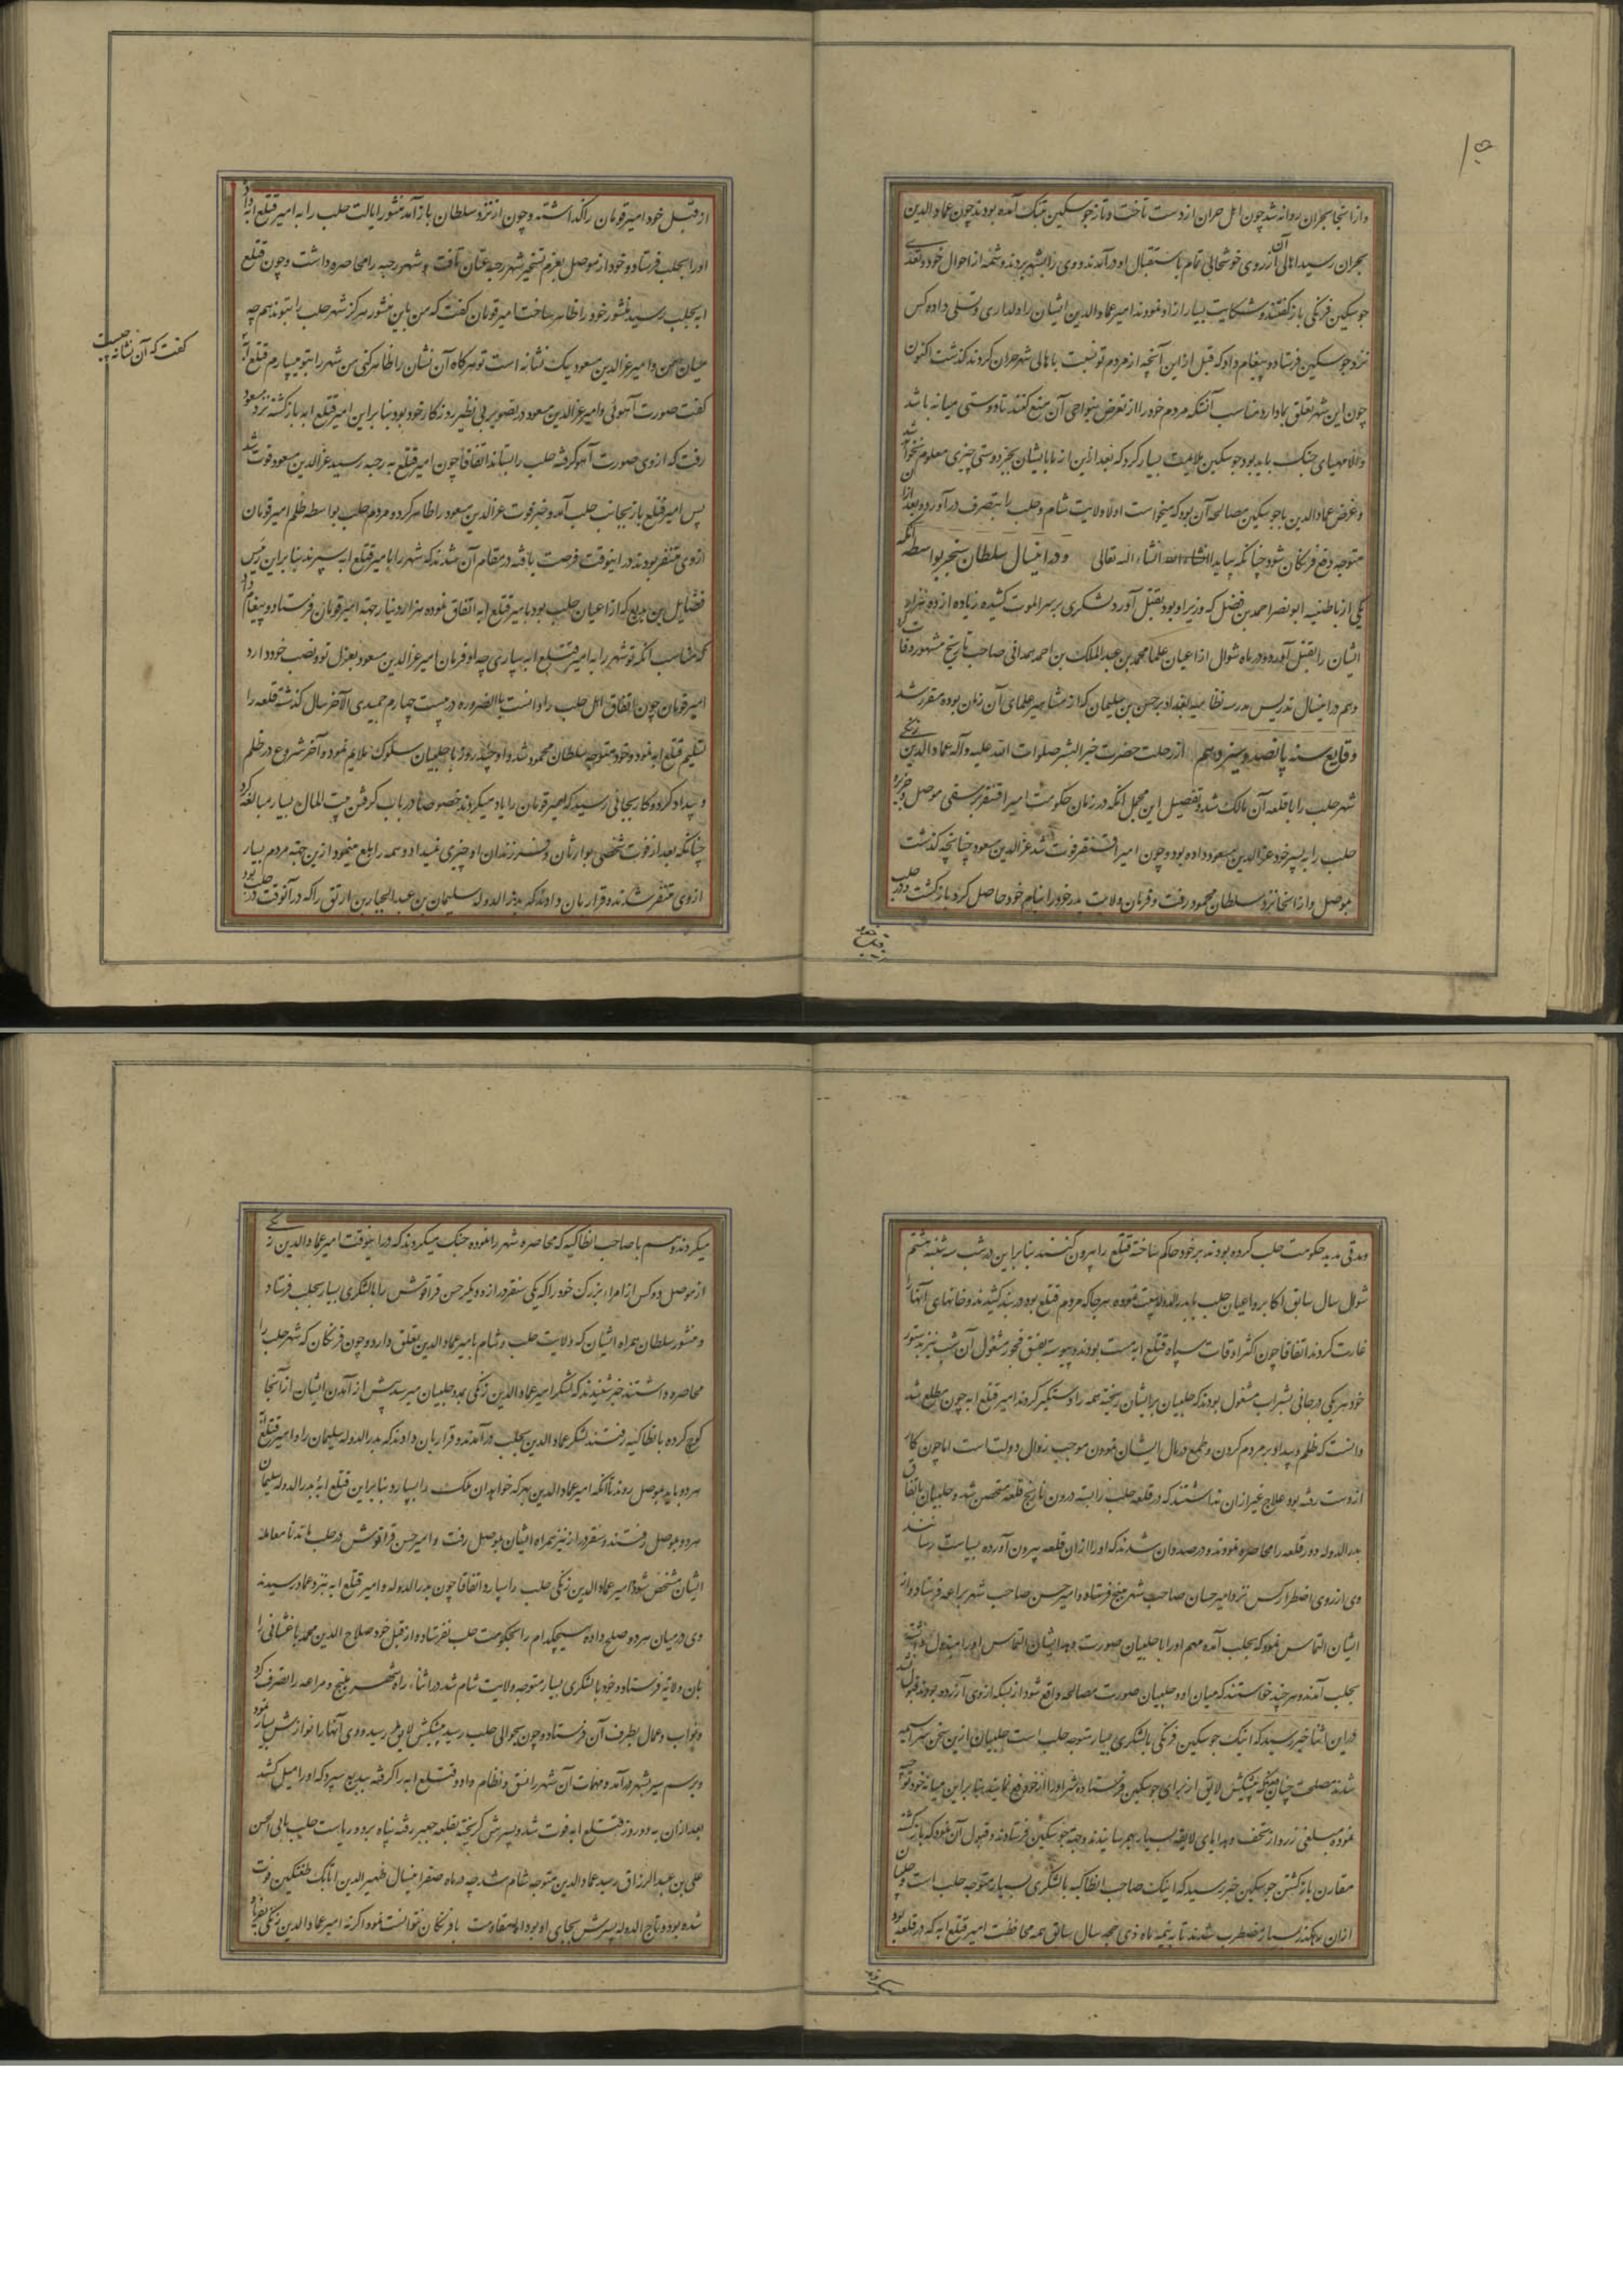 ۱۵
و از آنجا بحران روانه شد چون اهل حران از دست تاخت و تاز جوسکین بتنک آمده بودند چون عماد الدین
بحران رسید اهالی آن از روی خوشحالی تمام باستقبال او درآمدند و وی را بشهر بردند و شمهٔ از احوال خود و تعدی
جوسکین فرنکی باز کفتند و شکایت بسیار ازو نمودند امیر عماد الدین ایشان را دلداری و تسلی داده کس
نزد جوسکین فرستاد و پیغام داد که قبل ازین آنچه از مردم تو نسبت باهالی شهر حران کردند کذشت اکنون
چون این شهر تعلق بما دارد مناسب آنکه مردم خود را از تعرض بنواحی آن منع کنند تا دوستی میانه باشد
والا مهیای جنک باید بود جوسکین ملایمت بسیار کرد که بعد ازین از ما با ایشان بجز دوستی چیزی معلوم نخواهد شد
و غرض عماد الدین با جوسکین مصالحه آن بود که میخواست اولا ولایت شام و حلب را بتصرف درآورد و بعد ازان
متوجه دفع فرنکان شود چنانکه بیاید انشاء الله تعالی و درینسال سلطان سنجر بواسطه آنکه
یکی از باطنیه ابو نصر احمد بن فضل که وزیر او بود بقتل آورد لشکری بر سر الموت کشیده زیاده از ده هزار کس
ایشان را بقتل آورد و در ماه شوال از اعیان علما محمد بن عبد الملک بن احمد همدانی صاحب تاریخ مشهور وفات یافت
و هم درینسال تدریس مدرسه نظامیه بغداد بر حسن بن سلیمان که از مشاهیر علمای آن زمان بوده مقرر شد
وقایع سنه پانصد و سیزدهم از رحلت حضرت خیر البشر صلوات الله علیه و آله عماد الدین زنکی
شهر حلب را با قلعه آن مالک شد و تفصیل این مجمل آنکه در زمان حکومت امیر اقسنقر برسقی موصل و جزیره
حلب را به پسر خود عز الدین مسعود داده بود و چون امیر اقسنقر فوت شد عز الدین مسعود چنانچه کذشت
بموصل و از آنجا نزد سلطان محمود رفت و فرمان ولایت پدر خود را بنام خود حاصل کرد باز کشت و در حلب
از قبل خود امیر قومان را کذاشته و چون از نزد سلطان باز آمد منشور ایالت حلب را به امیر قتلغ ابه داد
او را بحلب فرستاد و خود از موصل بعزم تسخیر شهر رحبه عنان تافت و شهر رحبه را محاصره داشت و چون قتلغ
ابه بحلب رسید منشور خود را ظاهر ساخت امیر قومان کفت که من باین منشور هرکز شهر حلب را بتو ندهم چه
میان من و امیر عز الدین مسعود یک نشانه است تو هر کاه آن نشان را ظاهر کنی من شهر را بتو میسپارم قتلغ ابه
کفت که آن نشانه چیست
کفت صورت آهوئی و امیر عز الدین مسعود در تصویر بی نظیر روزکار خود بود بنابراین امیر قتلغ ابه باز کشته نزد مسعود
رفت که ازوی صورت آهو کرفته حلب را بستاند اتفاقا چون امیر قتلغ به رحبه رسید عز الدین مسعود فوت شد
پس امیر قتلغ باز بجانب حلب آمد و خبر فوت عز الدین مسعود را ظاهر کرد و مردم حلب بواسطه ظلم امیر قومان
ازوی متنفر بودند در اینوقت فرصت یافته در مقام آن شدند که شهر را بامیر قتلغ ابه سپرند بنابراین رئیس
فضایل بن بدیع که از اعیان حلب بود بامیر قتلغ ابه اتفاق نموده هزار دینار جهته امیر قومان فرستاد و پیغام داد
که مناسب آنکه تو شهر را به امیر قتلغ ابه سپاری چه او فرمان امیر عز الدین مسعود بعزل تو و نصب خود دارد
امیر قومان چون اتفاق اهل حلب را دانست بالضروره در بیست چهارم جمیدی الآخر سال کذشته قلعه را
تسلیم قتلغ ابه نمود و خود متوجه سلطان محمود شد و او چند روز با حلبیان سلوک ملایم نمود و آخر شروع در ظلم
و بیداد کرد و کار بجائی رسید که امیر قومان را یاد میکردند خصوصا در باب کرفتن بیت المال بسیار مبالغه کرد
چنانکه بعد از فوت شخصی بوارثان و فرزندان او چیزی نمیداد و همه را بلع مینمود ازین جهته مردم بسیار
ازوی متنفر شدند و قرار بان دادند که بدر الدوله سلیمان بن عبد الجبار بن ارتق را که در آنوقت در حلب بود
و مدتی مدید حکومت حلب کرده بودند بر خود حاکم ساخته قتلغ را بیرون کنند بنابراین در شب سه شنبه هشتم
شوال سال سابق اکابر و اعیان حلب با بدر الدوله بیعت نموده هر جا که مردم قتلغ بود در بند کشیدند و خانهای آنها را
غارت کردند اتفاقا چون اکثر اوقات سپاه قتلغ ابه مست بودند و پیوسته بفسق و فجور مشغول آن شب نیز بدستور
خود هر یکی در جائی بشراب مشغول بودند که حلبیان بر ایشان ریخته همه را دستکیر کردند امیر قتلغ ابه چون مطلع شد
دانست که ظلم و بیداد بر مردم کردن و طمع در مال ایشان نمودن موجب زوال دولت است اما چون کار
از دست رفته بود علاج غیر ازان نداشتند که در قلعه حلب را بسته درون نارنج قلعه متحصن شد و حلبیان باتفاق
بدر الدوله دور قلعه را محاصره نمودند و درصدد آن شدند که او را ازان قلعه بیرون آورده بسیاست رسانند
وی از روی اضطرار کس نزد امیر حسان صاحب شهر منبج فرستاد و امیر حسن صاحب شهر براعه فرستاد و از
ایشان التماس نمود که بحلب آمده مهم او را با حلبیان صورت دهد ایشان التماس او را مبذول داشته
بحلب آمدند و هر چند خواستند که میان او و حلبیان صورت مصالحه واقع شود از بسکه ازوی آزرده بودند قبول نشد
در این اثنا خبر رسید که اینک جوسکین فرنکی بالشکری بسیار متوجه حلب است حلبیان ازین سخن سراسیمه
شدند مصلحت چنان دیدند که پیشکش لایق از برای جوسکین فرستاده شر او را از خود دفع نمایند بنابراین میانه خود توزیع
نموده مبلغی زر و از تحف و هدایای لایقه بسیار بهم رسانیدند و جهته جوسکین فرستادند و قبول آن نمود که باز کشته
مقارن باز کشتن جوسکین خبر رسید که اینک صاحب انطاکیه بالشکری بسیار متوجه حلب است و حلبیان
ازان رهکذر بسیار مضطرب شدند تا به نیمه ماه ذی حجه سال سابق همه محافظت امیر قتلغ ابه که در قلعه بود
میکردند و هم با صاحب انطاکیه که محاصره شهر را نموده جنک میکردند که در اینوقت امیر عماد الدین زنکی
از موصل دو کس از امراء بزرک خود را که یکی سنقر دراز و دیکر حسن قراقوش را بالشکری بسیار بحلب فرستاد
و منشور سلطان همراه ایشان که ولایت حلب و شام بامیر عماد الدین تعلق دارد و چون فرنکان که شهر حلب را
محاصره داشتند خبر شنیدند که لشکر امیر عماد الدین زنکی بمدد حلبیان میرسد پیش از آمدن ایشان از آنجا
کوچ کرده بانطاکیه رفتند لشکر عماد الدین بحلب درآمدند و قرار بان دادند که بدر الدوله سلیمان را و امیر قتلغ ابه
هر دو باید بموصل روند تا آنکه امیر عماد الدین بهر که خواهد آن ملک را بسپارد بنابراین قتلغ ابه و بدر الدوله سلیمان
هر دو بموصل رفتند و سنقر دراز نیز همراه ایشان بموصل رفت و امیر حسن قراقوش در حلب ماند تا معامله
ایشان مشخص شود و امیر عماد الدین زنکی حلب را سپارد اتفاقا چون بدر الدوله و امیر قتلغ ابه بنزد عماد رسیدند
وی در میان هر دو صلح داده هیچکدام را بحکومت حلب نفرستاد و از قبل خود صلاح الدین محمد باغشیانی را
بان ولایة فرستاد و خود بالشکری بسیار متوجه ولایت شام شد در اثناء راه شهر منبج و مراعه را تصرف کرد
و نواب و عمال بطرف آن فرستاد و چون بحوالی حلب رسید پیشکش لایق رسید و وی آنها را نوازش بسیار نمود
و برسم سیر بشهر درآمد و مهمات آن شهر را نسق و نظام داد و قتلغ ابه را کرفته ببدیع سپرد که او را میل کشد
بعد ازان به دو روز قتلغ ابه فوت شد و پسرش کریخته بقلعه جعبر رفته پناه برد و ریاست حلب بابی الحسن
علی بن عبد الرزاق رسید عماد الدین متوجه شام شد چه در ماه صفر اینسال ظهیر الدین اتابک طغتکین فوت
شده بود و تاج الدوله پسرش بجای او بود اما مقاومت با فرنکان نتوانست نمود اکر نه امیر عماد الدین زنکی بفریاد